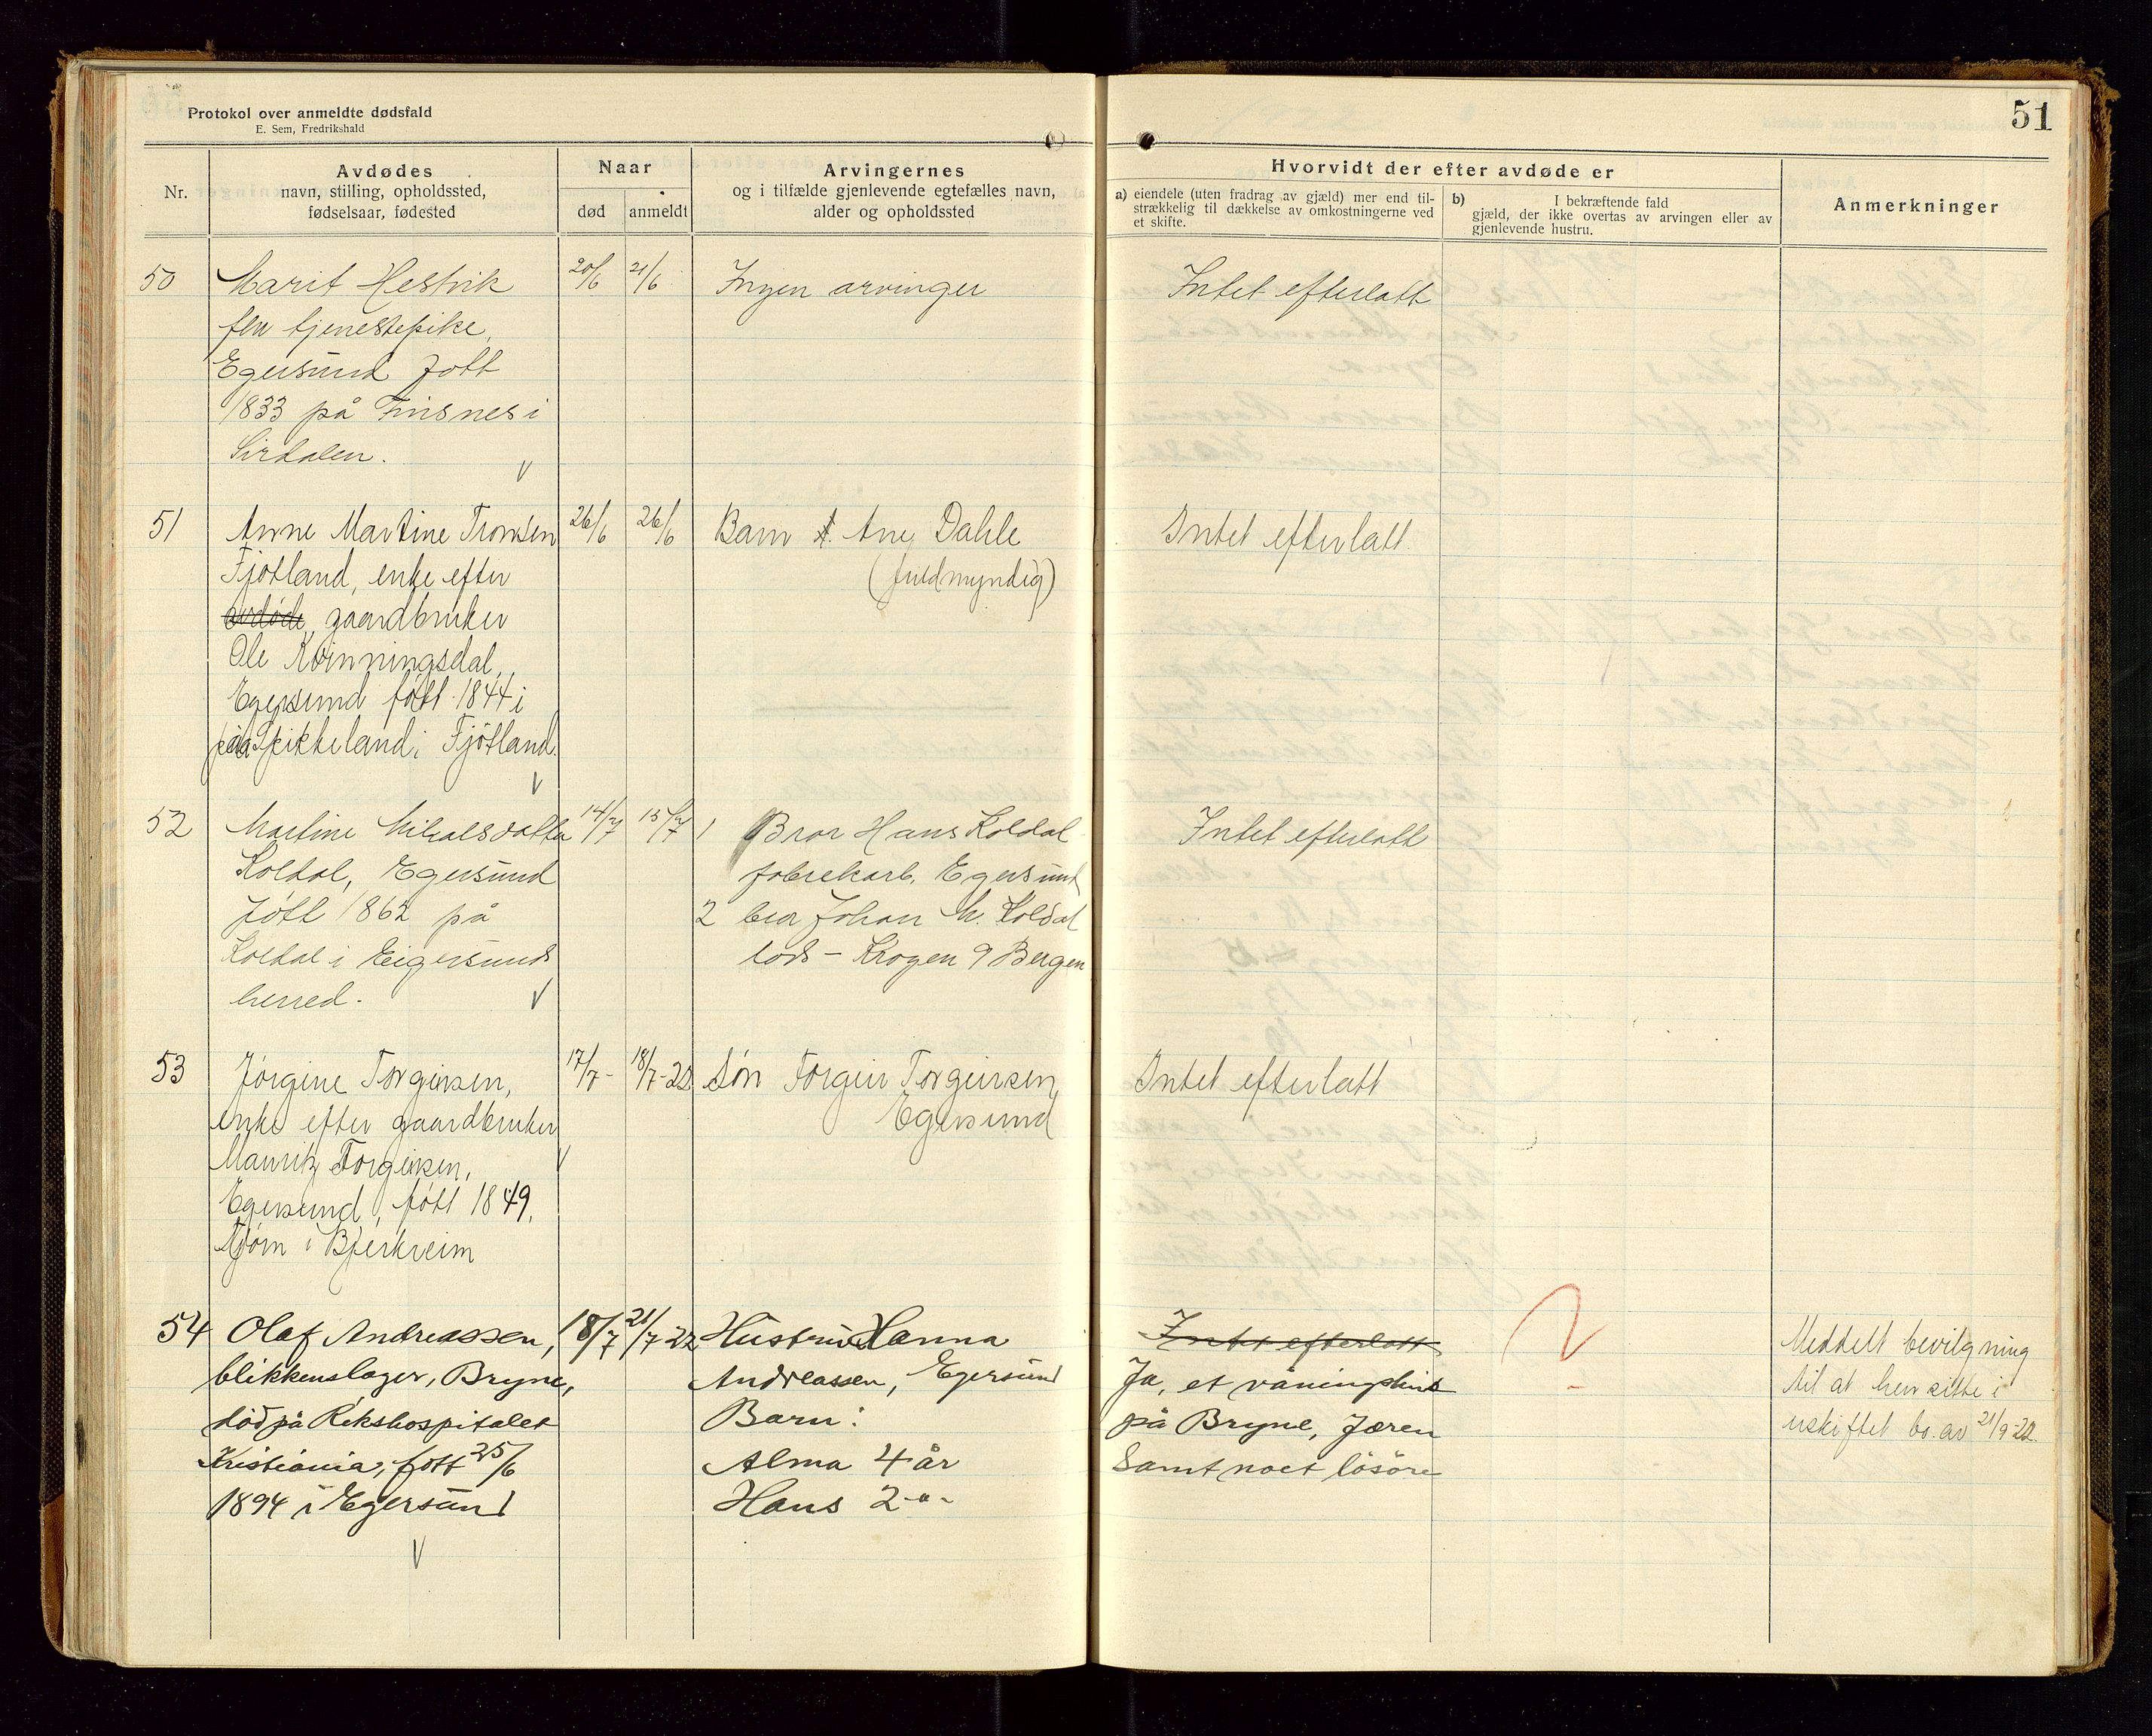 Protokol over anmeldte dødsfald
E. Sem, Fredrikshald
51
Nr.
Avdødes
navn, stilling, opholdssted,
fødselsaar, fødested
Naar
død
anmeldt
Arvingernes
og i tilfælde gjenlevende egtefælles navn,
alder og opholdssted
Hvorvidt der efter avdøde er
a) eiendele (uten fradrag av gjæld) mer end til-
strækkelig til dækkelse av omkostningerne ved
et skifte.
b) I bekræftende fald
gjæld, der ikke overtas av arvingen eller av
gjenlevende hustru.
Anmerkninger
50
Marit Hestvik
fhv tjenestepike,
Egersund født
1833 på Finsnes i
Sirdalen.
20/6
21/6
Ingen arvinger
Intet efterlatt
51
Anne Martine Tronsen
Fjotland, enke efter
avdøde, gaardbruker
Ole Kvinningsdal,
Egersund født 1844 i
paa i Fjotland.
26/6
26/6
Barn Ane Dahle
(fuldmyndig)
Intet efterlatt
52
Martine Mikalsdatter
Koldal, Egersund
født 1862 på
Koldal i Eigersunds
herred.
14/7
15/7
1 Bror Hans Koldal
fabrikarb. Egersund
2 bror Johan M. Koldal
lods - Krogen 9 Bergen
Intet efterlatt
53
Jørgine Torgersen,
enke efter gaardbruker
Mauritz Torgersen,
Egersund, født 1849,
i Bjerkreim
17/7-
18/7-22
Søn Torger Torgersen
Egersund
Intet efterlatt
54
Olaf Andreassen,
blikkenslager, Bryne,
død på Rikshospitalet
Kristiania, født 25/6
1894 i Egersund
18/7
21/7-22
Hustru Hanna
Andreassen, Egersund
Barn:
Alma 4 år
Hans 2 -"-
Intet efterlatt
Ja, et våningshus
på Bryne, Jæren
Samt noet løsøre
Meddelt bevilgning
til at hensitte i
uskiftet bo. av 21/9-22.